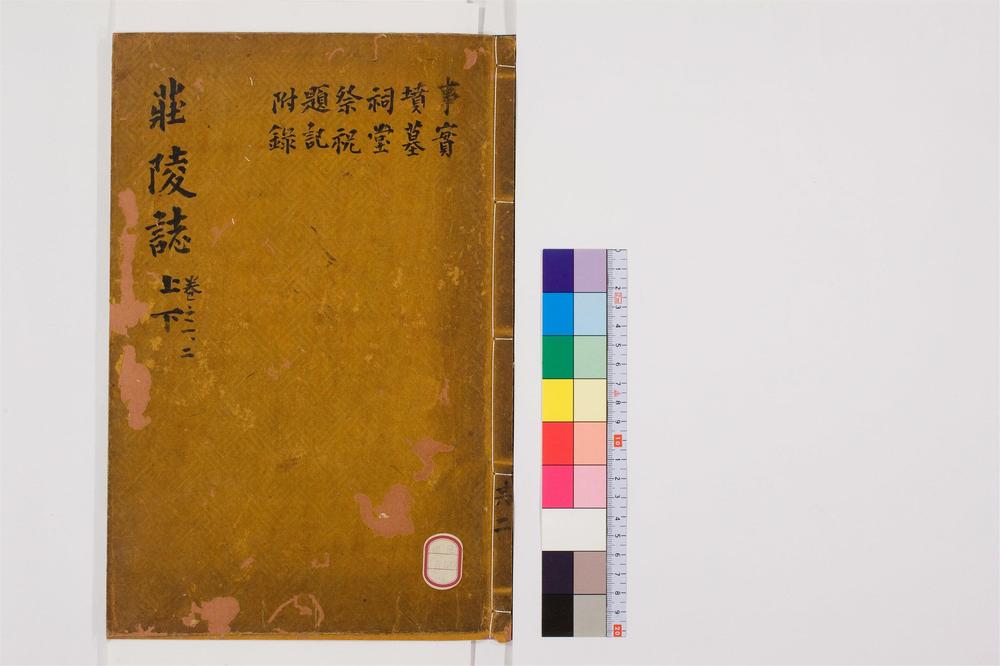 事實
墳墓
祠堂
祭祝
題記
附錄
莊陵誌 上下
卷之一、二
共二